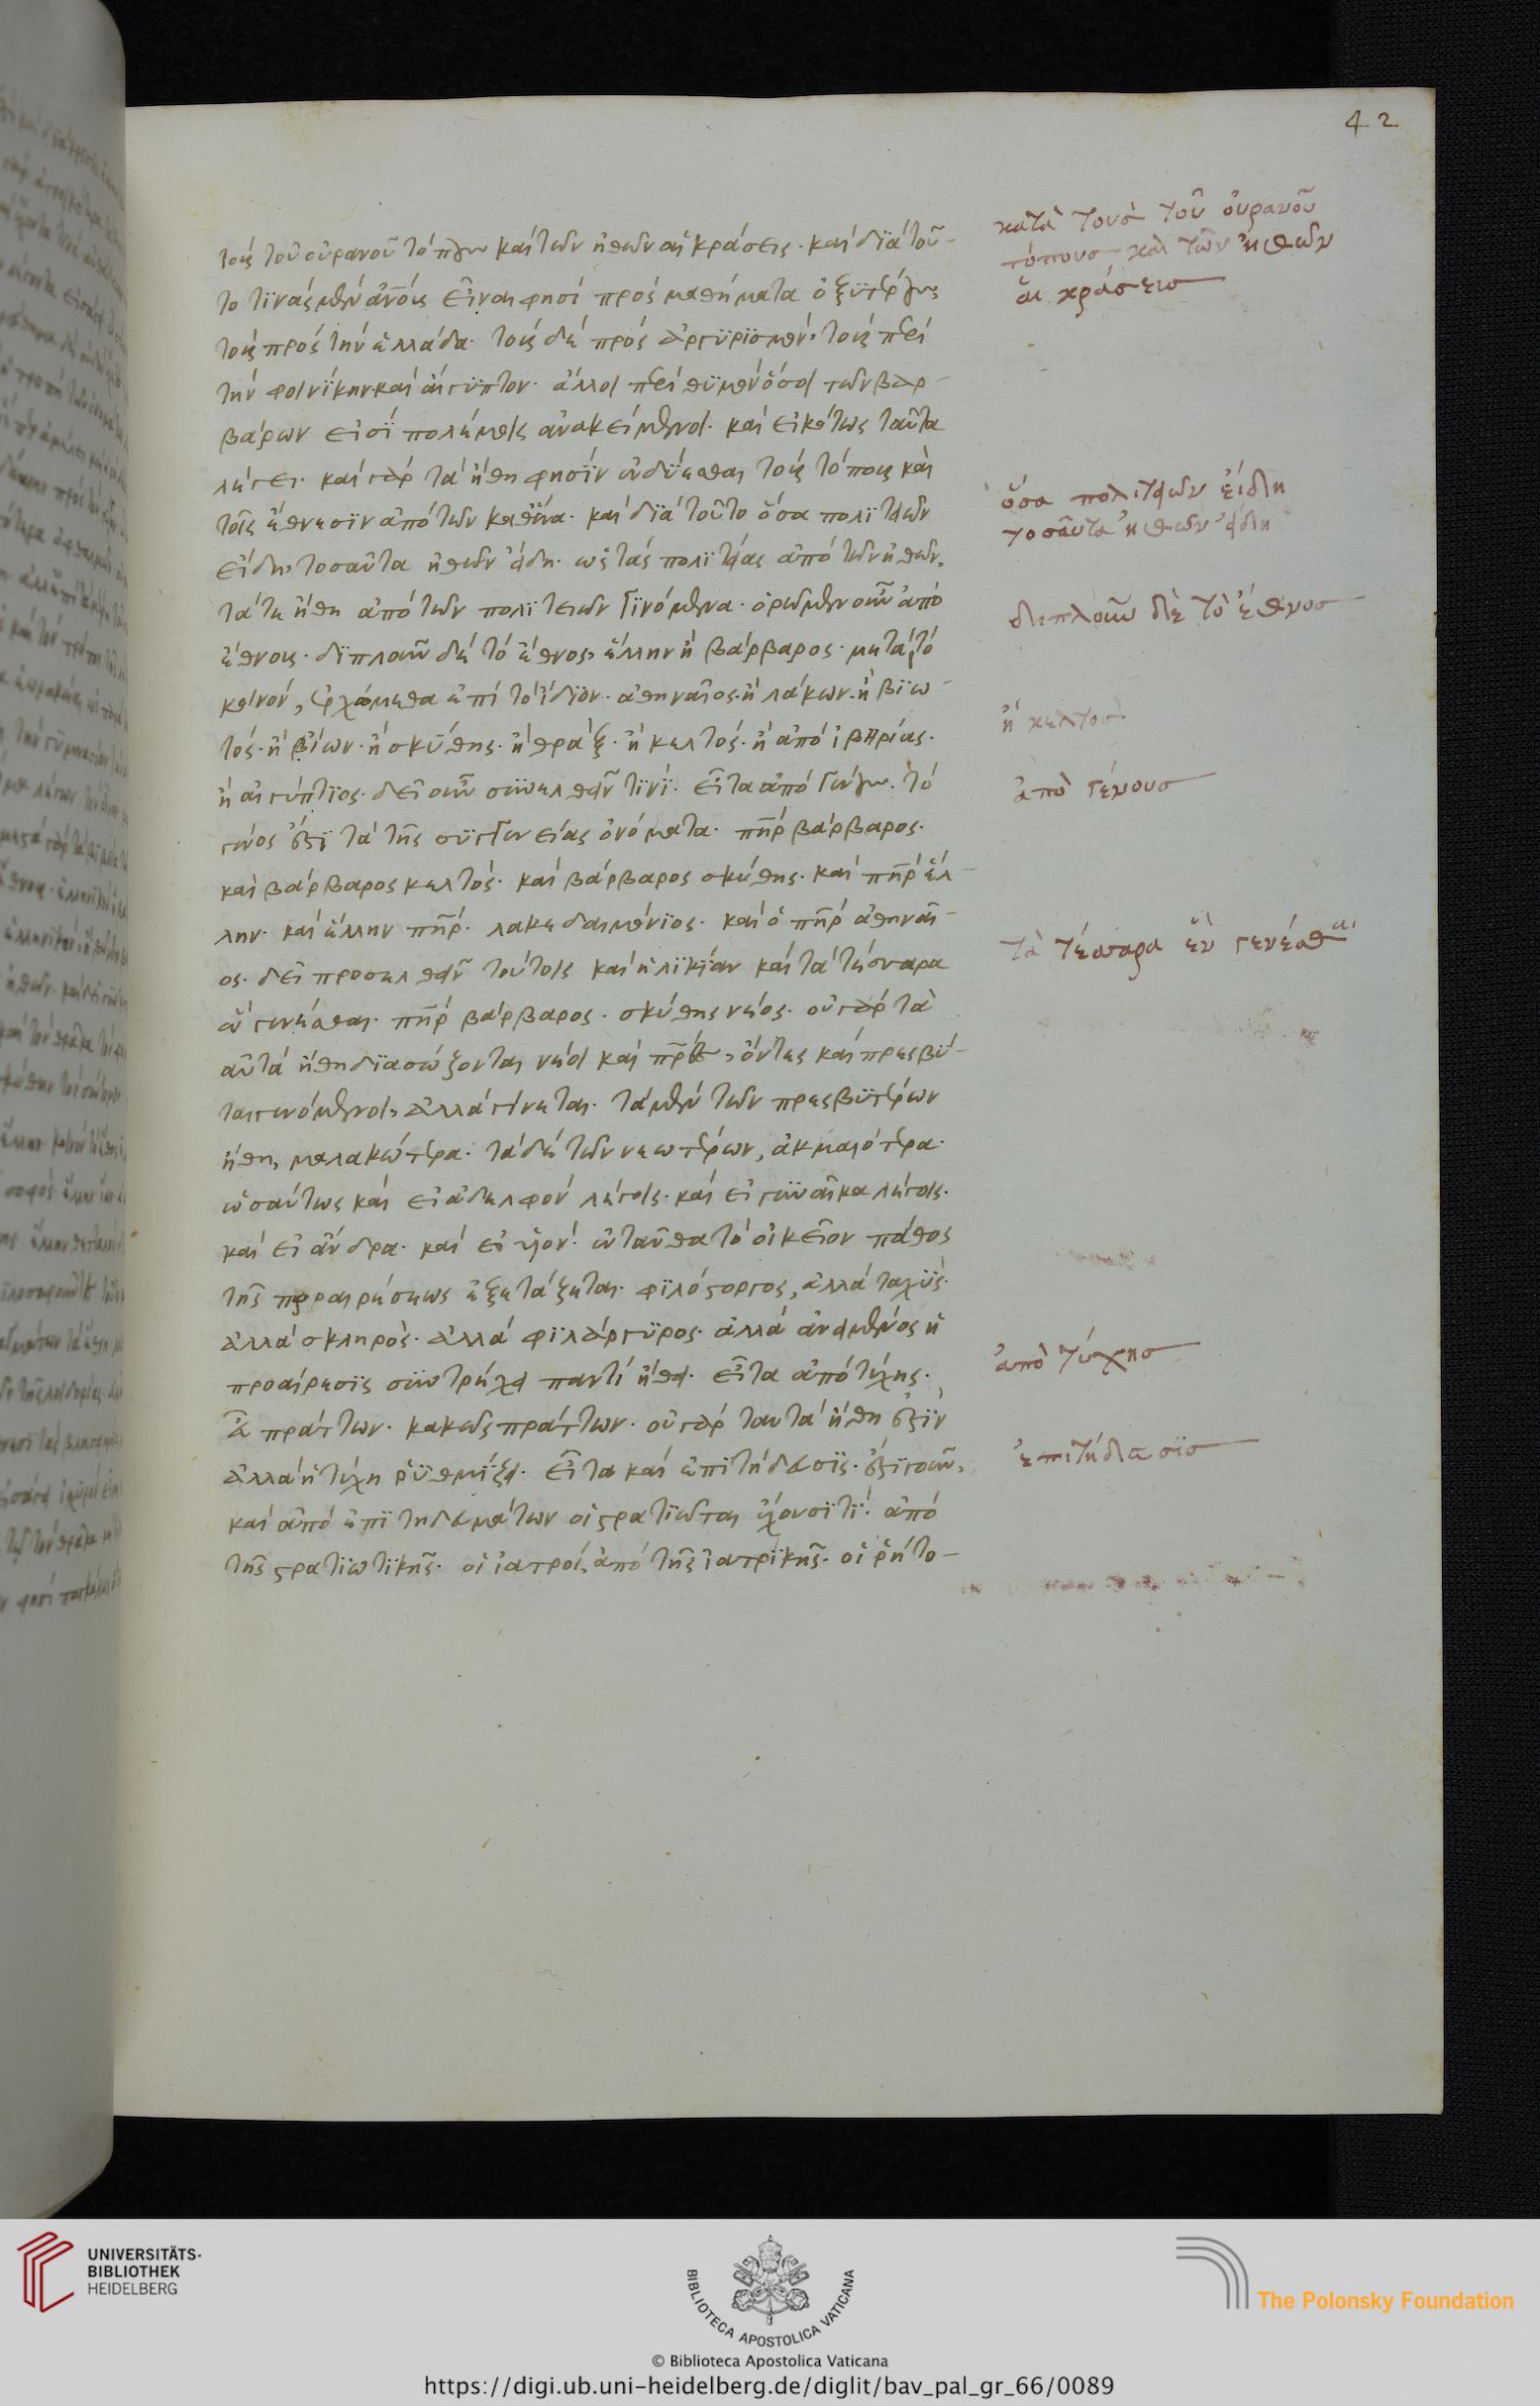 42
τοὺς τοῦ οὐρανοῦ τόπους καὶ τῶν ἠθῶν αἱ κράσεις· καὶ διὰ τοῦ-
το τινὰς μὲν ἀνο͂υς εἶναι φησὶ πρὸς μαθήματα ὀξυτέρους
τοὺς πρὸς τὴν ἑλλάδα· τοὺς δὲ πρὸς ἀργυρισμὸν, τοὺς περὶ
τὴν φοινίκην καὶ αἴγυπτον· ἄλλοι περὶ θυμὸν ὅσοι τῶν βαρ-
βάρων εἰσὶ πολέμοις ἀνακείμενοι· καὶ εἰκότως ταῦτα
λέγει· καὶ γὰρ τὰ ἤθη φησὶν ἐνδύεσθαι τοὺς τόπους καὶ
τοῖς ἔθνεσιν ἀπὸ τῶν καθένα· καὶ διὰ τοῦτο ὅσα πολιτειῶν
εἴδη, τοσαῦτα ἠθῶν εἴδη· ὡς τὰς πολιτείας ἀπὸ τῶν ἠθῶν,
τά τε ἤθη ἀπὸ τῶν πολιτειῶν γινόμενα· ὁρῶμεν οὖν ἀπὸ
ἔθνους· διπλοῦν δὲ τὸ ἔθνος, ἕλλην ἢ βάρβαρος· μετὰ τὸ
κοινὸν, ἐρχόμεθα ἐπὶ τὸ ἴδιον· ἀθηναῖος· ἢ λάκων· ἢ βιω-
τός· ἢ βίων· ἢ σκύθης· ἢ θρᾲξ· ἢ κελτός· ἢ ἀπὸ ἰβηρίας·
ἢ αἰγύπτιος· δεῖ οὖν συνελθεῖν τινί· εἶτα ἀπὸ γένους· τὸ
γένος ἐστὶ τὰ τῆς συγγενείας ὀνόματα· πηρ βάρβαρος·
καὶ βάρβαρος κελτός· καὶ βάρβαρος σκύθης· καὶ πηρ ἕλ-
λην· καὶ ἕλλην πηρ· λακεδαιμόνιος· καὶ ὁ πηρ ἀθηναῖ-
ος· δεῖ προσελθεῖν τούτοις καὶ ἡλικίαν καὶ τὰ τέσσαρα
ἓν γενέσθαι· πηρ βάρβαρος· σκύθης νέος· οὐ γὰρ τὰ
αὐτὰ ἤθη διασώζονται νέοι καὶ πρες, ὄντες καὶ πρεσβύ-
ται γενόμενοι, ἀλλὰ γίνεται· τὰ μὲν τῶν πρεσβυτέρων
ἤθη, μαλακώτερα· τὰ δὲ τῶν νεωτέρων, ἀκμαιότερα·
ὡσαύτως καὶ εἰ ἀδελφὸν λέγοις· καὶ εἰ γυναῖκα λέγοις·
καὶ εἰ ἄνδρα· καὶ εἰ υἱόν· ἐνταῦθα τὸ οἰκεῖον πάθος
τῆς προαιρέσεως ἐξετάζεται· φιλόστοργος, ἀλλὰ ταχύς·
ἀλλὰ σκληρός· ἀλλὰ φιλάργυρος· ἀλλὰ ἀνειμένος ἡ
προαίρεσις συντρέχει παντὶ ἤθει· εἶτα ἀπὸ τύχης·
εὖ πράττων· κακῶς πράττων· οὐ γὰρ ταυτὰ ἤθη ἐστὶν
ἀλλὰ ἡ τύχη ῥυθμίζει· εἶτα καὶ ἐπιτήδευσις· ἔστι γοῦν,
καὶ ἀπὸ ἐπιτηδευμάτων οἱ στρατιῶται ἔχουσί τι· ἀπὸ
τῆς στρατιωτικῆς· οἱ ἰατροὶ, ἀπὸ τῆς ἰατρικῆς· οἱ ῥήτο-
κατὰ τοὺς τοῦ οὐρανοῦ
τόπους καὶ τῶν ἠθῶν
αἱ κράσεις
ὅσα πολιτειῶν εἴδη
τοσαῦτα ἠθῶν εἴδη
διπλοῦν δὲ τὸ ἔθνος
ἢ κελτός
ἀπὸ γένους
τὰ τέσσαρα ἓν γενέσθαι
ἀπὸ τύχης
ἐπιτήδευσις
UNIVERSITÄTS-
BIBLIOTHEK
HEIDELBERG
BIBLIOTECA APOSTOLICA VATICANA
© Biblioteca Apostolica Vaticana
The Polonsky Foundation
https://digi.ub.uni-heidelberg.de/diglit/bav_pal_gr_66/0089